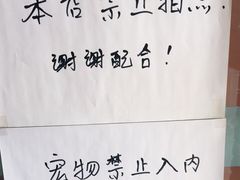 本店禁止拍照!
谢谢配合!
宠物禁止入内